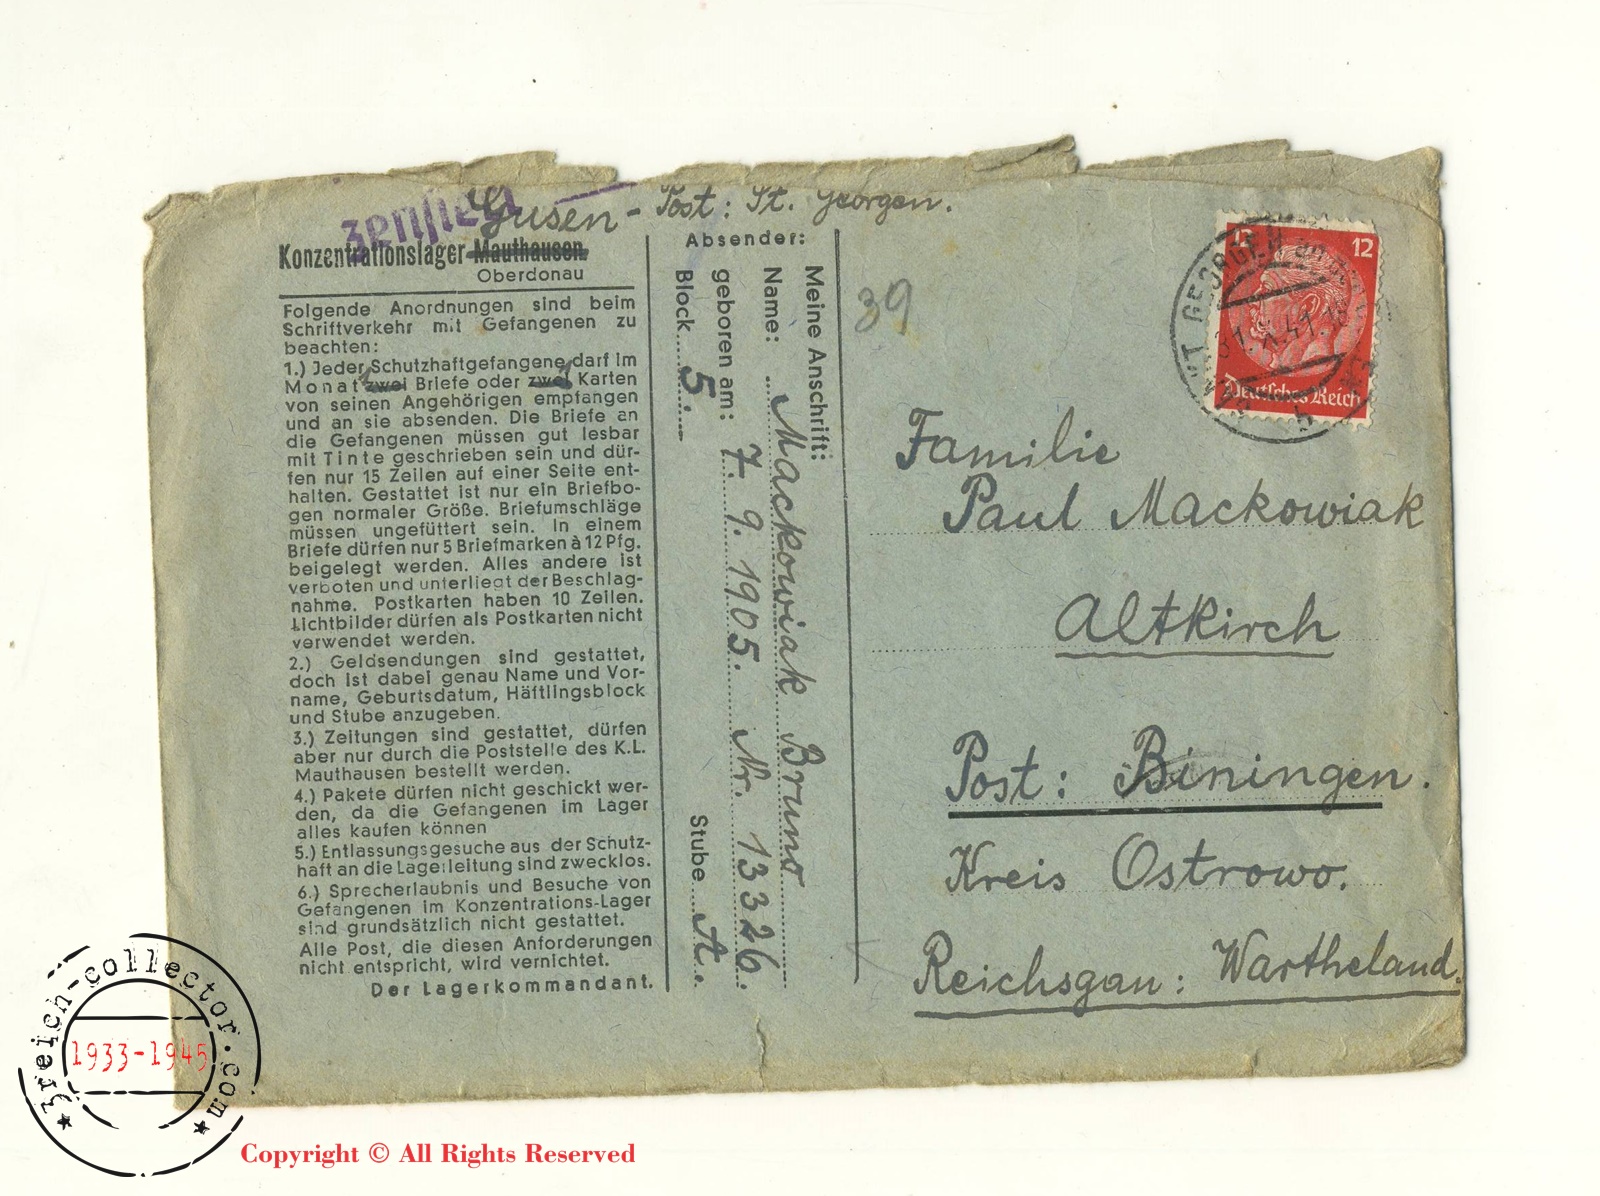 zensiert
Gusen - Post: St. Georgen.
Konzentrationslager Mauthausen
Oberdonau
Folgende Anordnungen sind beim
Schriftverkehr mit Gefangenen zu
beachten:
1.) Jeder Schutzhaftgefangene darf im
Monat zwei Briefe oder zwei Karten
von seinen Angehörigen empfangen
und an sie absenden. Die Briefe an
die Gefangenen müssen gut lesbar
mit Tinte geschrieben sein und dür-
fen nur 15 Zeilen auf einer Seite ent-
halten. Gestattet ist nur ein Briefbo-
gen normaler Größe. Briefumschläge
müssen ungefüttert sein. In einem
Briefe dürfen nur 5 Briefmarken à 12 Pfg.
beigelegt werden. Alles andere ist
verboten und unterliegt der Beschlag-
nahme. Postkarten haben 10 Zeilen.
Lichtbilder dürfen als Postkarten nicht
verwendet werden.
2.) Geldsendungen sind gestattet,
doch ist dabei genau Name und Vor-
name, Geburtsdatum, Häftlingsblock
und Stube anzugeben.
3.) Zeitungen sind gestattet, dürfen
aber nur durch die Poststelle des K.L.
Mauthausen bestellt werden.
4.) Pakete dürfen nicht geschickt wer-
den, da die Gefangenen im Lager
alles kaufen können
5.) Entlassungsgesuche aus der Schutz-
haft an die Lagerleitung sind zwecklos.
6.) Sprecherlaubnis und Besuche von
Gefangenen im Konzentrations-Lager
sind grundsätzlich nicht gestattet.
Alle Post, die diesen Anforderungen
nicht entspricht, wird vernichtet.
Der Lagerkommandant.
Absender:
Meine Anschrift:
Name: Mackowiak Bruno
geboren am: 7. 9. 1905. Nr. 13326.
Block 5. Stube A.
39
12 12
Deutsches Reich
ST. GEORGEN
31.X.41.18
b
Familie
Paul Mackowiak
Altkirch
Post: Biningen.
Kreis Ostrowo.
Reichsgau: Wartheland.
3reich-collector.com
1933-1945
Copyright © All Rights Reserved